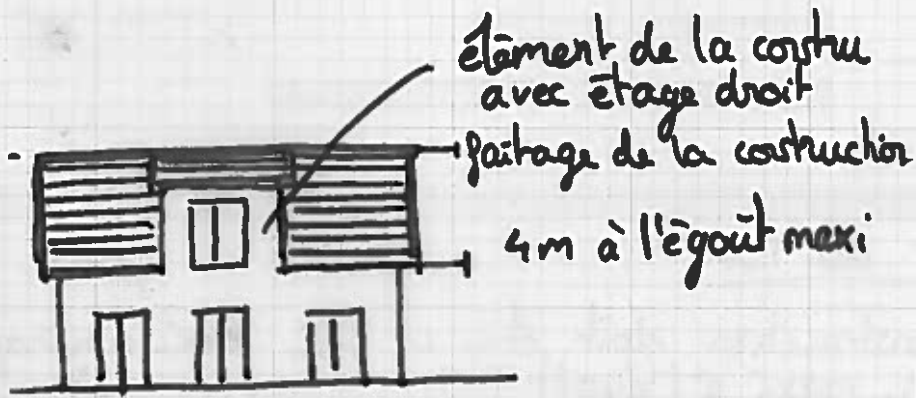 élément de la constru
avec étage droit
faitage de la construction
4 m à l'égoût maxi